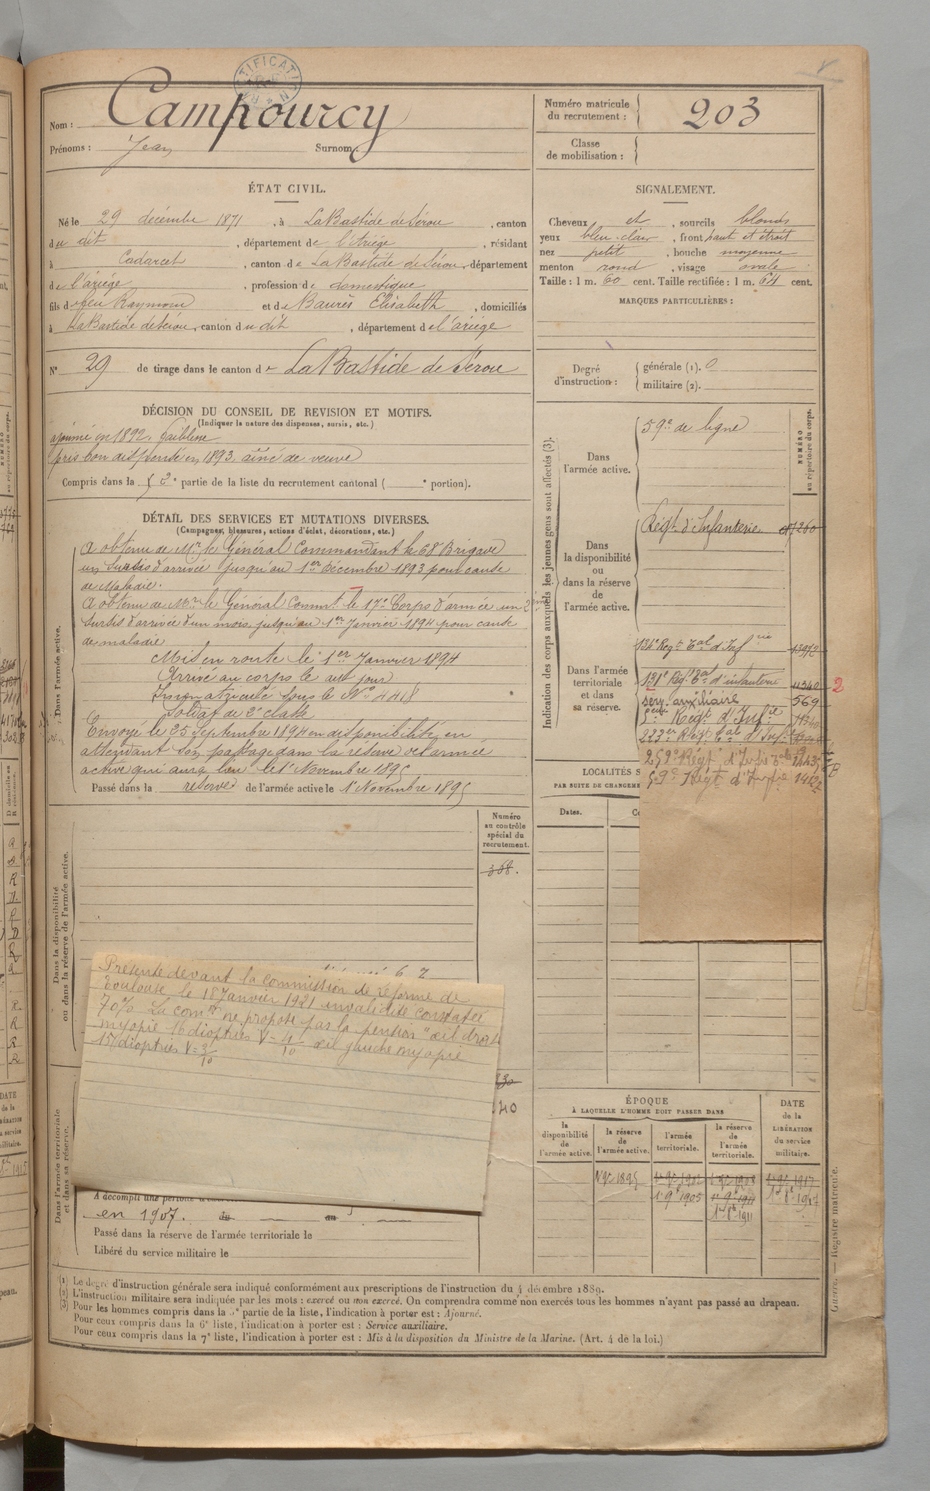 Nom : Campourcy
Prénoms : Jean Surnom :
Numéro matricule du recrutement : 203
Classe de mobilisation :
ÉTAT CIVIL.
Né le 29 décembre 1871, à La Bastide de Sérou, canton
du dit, département de l'Ariège, résidant
à Cadarcet, canton de La Bastide de Sérou, département
de l'ariège, profession de domestique
fils de feu Raymond et de Elisabeth, domiciliés
à La Bastide de Sérou, canton du dit, département de l'ariège
N° 29 de tirage dans le canton de La Bastide de Sérou
SIGNALEMENT.
Cheveux et, sourcils blonds
yeux bleu-clair, front haut et étroit
nez petit, bouche moyenne
menton rond, visage ovale
Taille : 1 m. 60 cent. Taille rectifiée : 1 m. 64 cent.
MARQUES PARTICULIÈRES :
Degré d'instruction :
générale (1). 0
militaire (2).
DÉCISION DU CONSEIL DE REVISION ET MOTIFS.
(Indiquer la nature des dispenses, sursis, etc.)
ajourné en 1892, faiblesse
pris bon dispensé en 1893, aîné de veuve
Compris dans la 2e partie de la liste du recrutement cantonal ( e portion).
DÉTAIL DES SERVICES ET MUTATIONS DIVERSES.
(Campagnes, blessures, actions d'éclat, décorations, etc.)
Dans l'armée active.
A obtenu de Mr le Général Commandant la 68 Brigade
un Sursis d'arrivée jusqu'au 1er Décembre 1893 pour cause
de Maladie.
A obtenu de Mr le Général Commt le 17e Corps d'armée un 2ème
Sursis d'arrivée d'un mois, jusqu'au 1er Janvier 1894 pour cause
de maladie
Mis en route le 1er Janvier 1894
Arrivé au corps le dit jour
Immatriculé sous le No 4418
Soldat de 2e classe
Envoyé le 25 Septembre 1894 en disponibilité, en
attendant son passage dans la réserve de l'armée
active qui aura lieu le 1er Novembre 1895
Passé dans la réserve de l'armée active le 1er Novembre 1895
Indication des corps auxquels les jeunes gens sont affectés (3).
NUMÉRO au répertoire du corps.
Dans l'armée active.
59e de ligne
Dans la disponibilité ou dans la réserve de l'armée active.
Régt d'Infanterie
Dans l'armée territoriale et dans sa réserve.
134e Regt Tal d'Infie
131e Régt Tal d'infanterie
serv. auxiliaire 569
Regt d'Infie
Regt Tal d'Infie
259e Régt d'Infie Tale
59e Régt d'Infie
2
B
LOCALITÉS S
PAR SUITE DE CHANGEME
Dates.
Dans la disponibilité ou dans la réserve de l'armée active.
Numéro au contrôle spécial du recrutement.
368.
Présenté devant la commission de réforme de
Toulouse le 18 Janvier 1921 invalidité constatée
70% La comon ne propose pas la pension "œil droit
myopie 16 dioptries V = 4/10 œil gauche myopie
15 dioptries V = 3/10
Dans l'armée territoriale et dans sa réserve.
A accompli une période
en 1907.
Passé dans la réserve de l'armée territoriale le
Libéré du service militaire le
ÉPOQUE
À LAQUELLE L'HOMME DOIT PASSER DANS
la disponibilité de l'armée active.
la réserve de l'armée active.
l'armée territoriale.
la réserve de l'armée territoriale.
DATE de la LIBÉRATION du service militaire.
1 9e 1895
1 9e 1905
(1) Le degré d'instruction générale sera indiqué conformément aux prescriptions de l'instruction du 4 décembre 1889.
(2) L'instruction militaire sera indiquée par les mots : exercé ou non exercé. On comprendra comme non exercés tous les hommes n'ayant pas passé au drapeau.
(3) Pour les hommes compris dans la 5e partie de la liste, l'indication à porter est : Ajourné.
Pour ceux compris dans la 6e liste, l'indication à porter est : Service auxiliaire.
Pour ceux compris dans la 7e liste, l'indication à porter est : Mis à la disposition du Ministre de la Marine. (Art. 4 de la loi.)
Guerre. — Registre matricule.